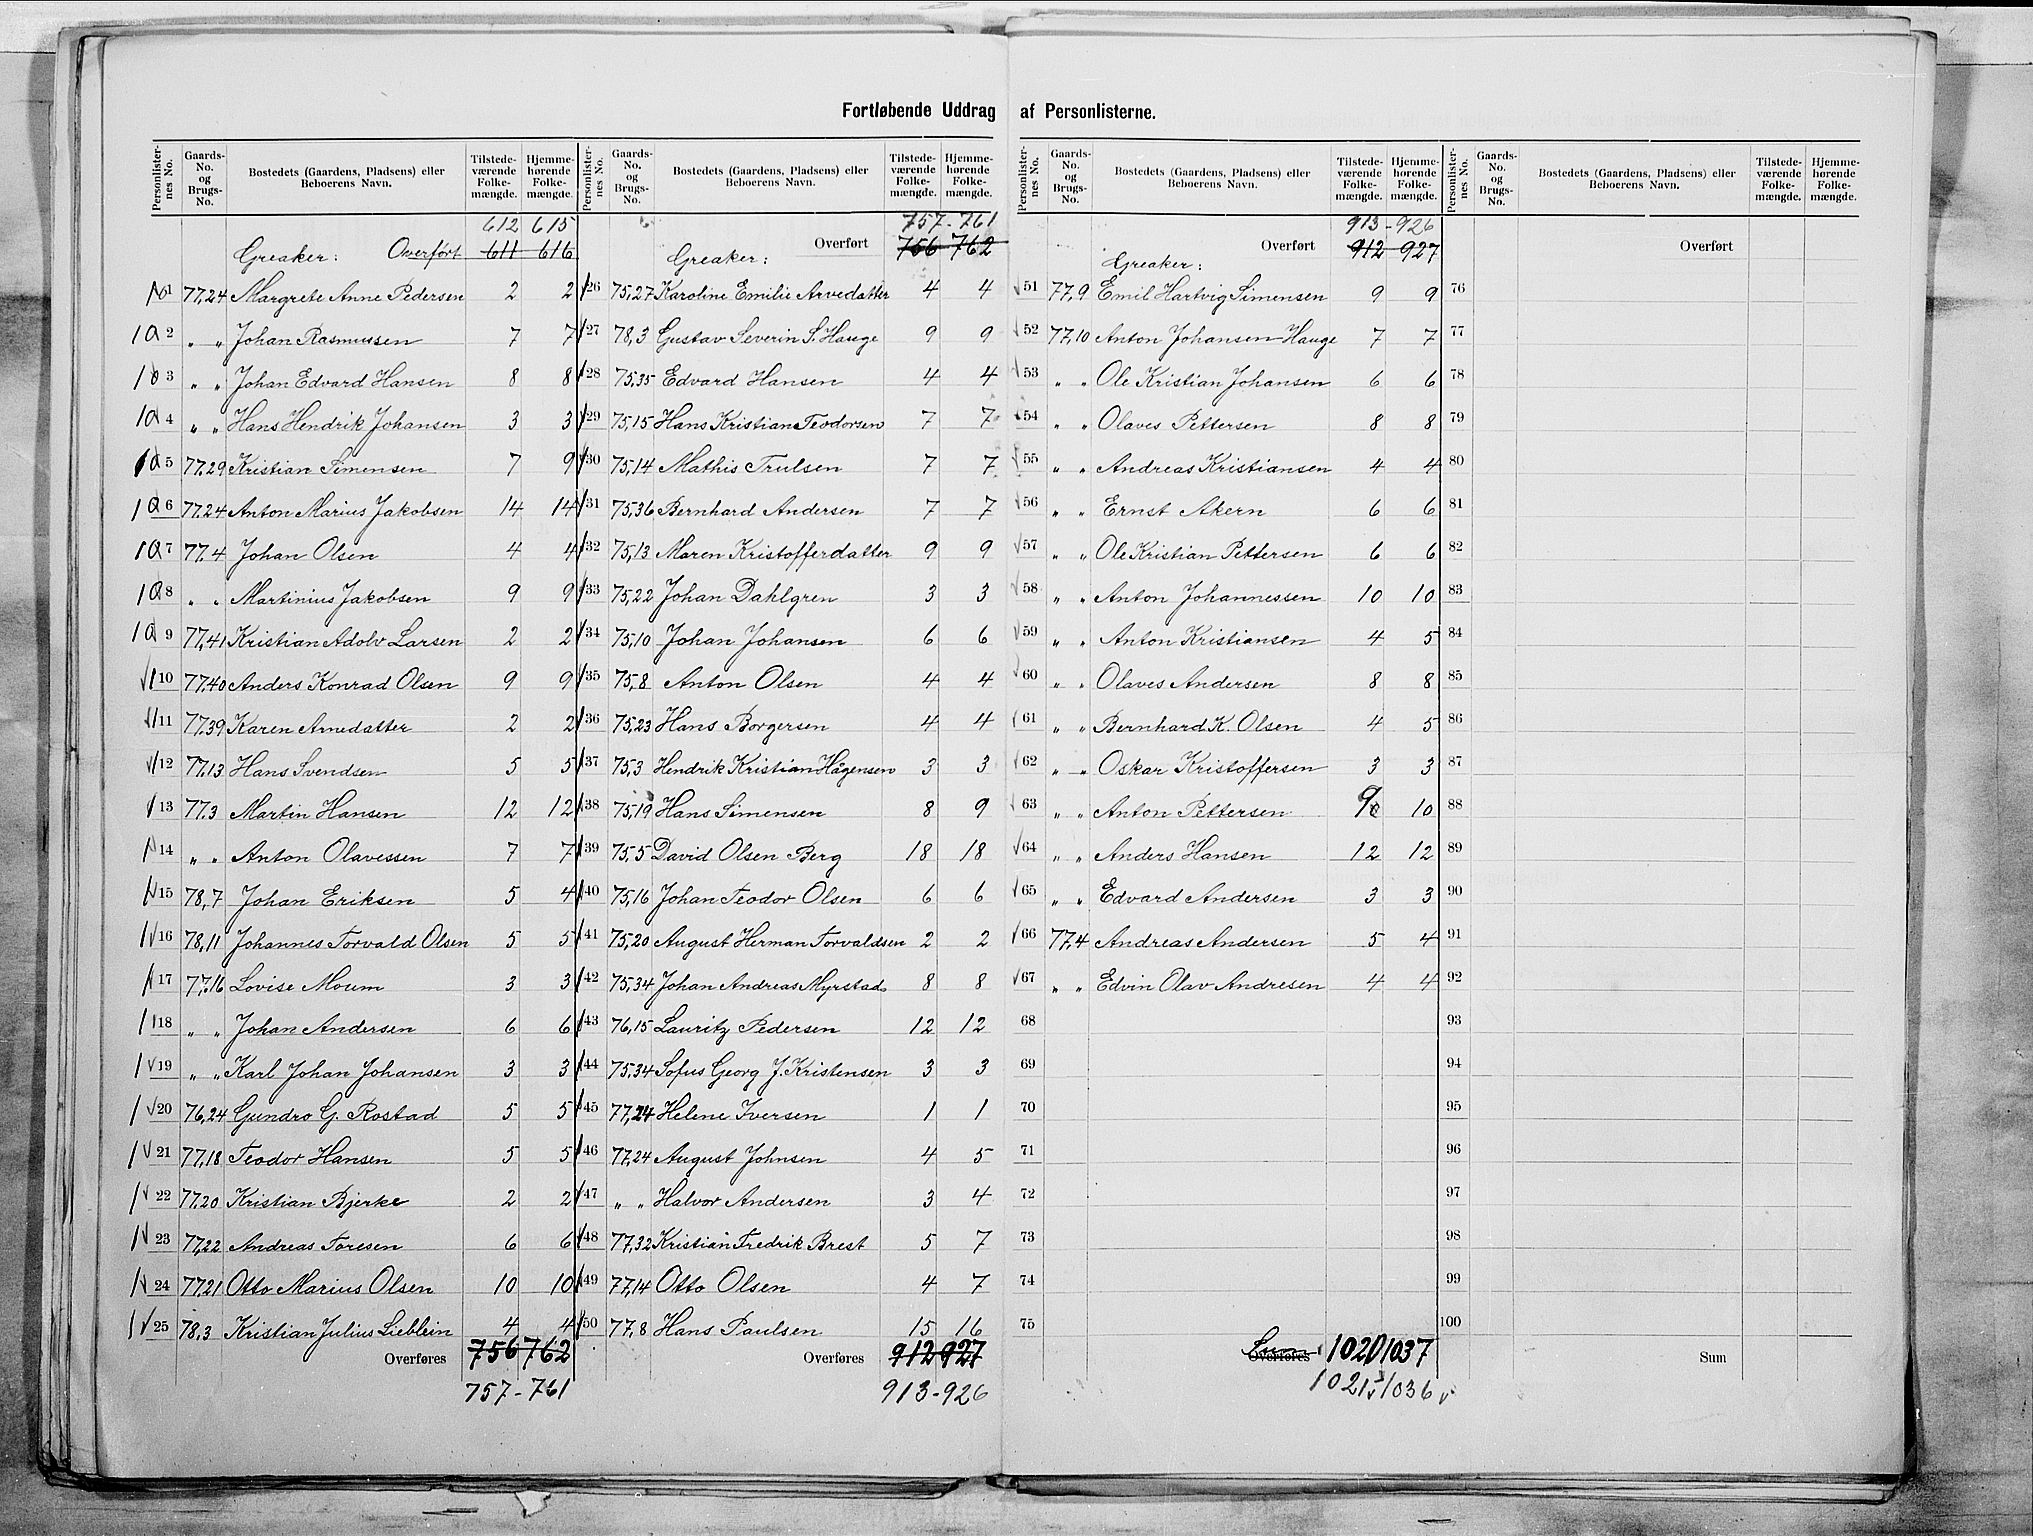 Fortløbende Uddrag af Personlisterne.
Personlisternes No. Gaards-No. og Brugs-No. Bostedets (Gaardens, Pladsens) eller Beboerens Navn. Tilstedeværende Folkemængde. Hjemmehørende Folkemængde.
612 615
Greaker: Overført 611 616
1 77,24 Margrete Anne Pedersen 2 2
2 " " Johan Rasmussen 7 7
3 " " Johan Edvard Hansen 8 8
4 " " Hans Hendrik Johansen 3 3
5 77,29 Kristian Simensen 7 9
6 77,24 Anton Marius Jakobsen 14 14
7 77,4 Johan Olsen 4 4
8 " " Martinius Jakobsen 9 9
9 77,41 Kristian Adolv Larsen 2 2
10 77,40 Anders Konrad Olsen 9 9
11 77,39 Karen Arnedatter 2 2
12 77,13 Hans Svendsen 5 5
13 77,3 Martin Hansen 12 12
14 " " Anton Olavessen 7 7
15 78,7 Johan Eriksen 5 4
16 78,11 Johannes Torvald Olsen 5 5
17 77,16 Lovise Moum 3 3
18 " " Johan Andersen 6 6
19 " " Karl Johan Johansen 3 3
20 76,24 Gundro G. Rostad 5 5
21 77,18 Teodor Hansen 5 5
22 77,20 Kristian Bjerke 2 2
23 77,22 Andreas Toresen 6 6
24 77,21 Otto Marius Olsen 10 10
25 78,3 Kristian Julius Lieblein 4 4
Overføres 756 762
757 - 761
Personlisternes No. Gaards-No. og Brugs-No. Bostedets (Gaardens, Pladsens) eller Beboerens Navn. Tilstedeværende Folkemængde. Hjemmehørende Folkemængde.
757 - 761
Greaker: Overført 756 762
26 75,27 Karoline Emilie Arvedatter 4 4
27 78,3 Gustav Severin S. Hauge 9 9
28 75,35 Edvard Hansen 4 4
29 75,15 Hans Kristian Teodorsen 7 7
30 75,14 Mathis Trulsen 7 7
31 75,36 Bernhard Andersen 7 7
32 75,13 Maren Kristofferdatter 9 9
33 75,22 Johan Dahlgren 3 3
34 75,10 Johan Johansen 6 6
35 75,8 Anton Olsen 4 4
36 75,23 Hans Borgersen 4 4
37 75,3 Hendrik Kristian Hågensen 3 3
38 75,19 Hans Simensen 8 9
39 75,5 David Olsen Berg 18 18
40 75,16 Johan Teodor Olsen 6 6
41 75,20 August Herman Torvaldsen 2 2
42 75,34 Johan Andreas Myrstad 8 8
43 76,15 Lauritz Pedersen 12 12
44 75,34 Sofus Georg J. Kristensen 3 3
45 77,24 Helene Iversen 1 1
46 77,24 August Johnsen 4 5
47 " " Halvor Andersen 3 4
48 77,32 Kristian Fredrik Brest 5 7
49 77,14 Otto Olsen 4 7
50 77,8 Hans Paulsen 15 16
Overføres 912 927
913 - 926
Personlisternes No. Gaards-No. og Brugs-No. Bostedets (Gaardens, Pladsens) eller Beboerens Navn. Tilstedeværende Folkemængde. Hjemmehørende Folkemængde.
913 - 926
Greaker: Overført 912 927
51 77,9 Emil Hartvig Simensen 9 9
52 77,10 Anton Johansen Hauge 7 7
53 " " Ole Kristian Johansen 6 6
54 " " Olaves Pettersen 8 8
55 " " Andreas Kristiansen 4 4
56 " " Ernst Akern 6 6
57 " " Ole Kristian Pettersen 6 6
58 " " Anton Johannessen 10 10
59 " " Anton Kristiansen 4 5
60 " " Olaves Andersen 8 8
61 " " Bernhard K. Olsen 4 5
62 " " Oskar Kristoffersen 3 3
63 " " Anton Pettersen 9 10
64 " " Anders Hansen 12 12
65 " " Edvard Andersen 3 3
66 77,4 Andreas Andersen 5 4
67 " " Edvin Olav Andresen 4 4
68
69
70
71
72
73
74
75
Overføres Sum 1020 1037
1021 1036
Personlisternes No. Gaards-No. og Brugs-No. Bostedets (Gaardens, Pladsens) eller Beboerens Navn. Tilstedeværende Folkemængde. Hjemmehørende Folkemængde.
Overført
76
77
78
79
80
81
82
83
84
85
86
87
88
89
90
91
92
93
94
95
96
97
98
99
100
Sum